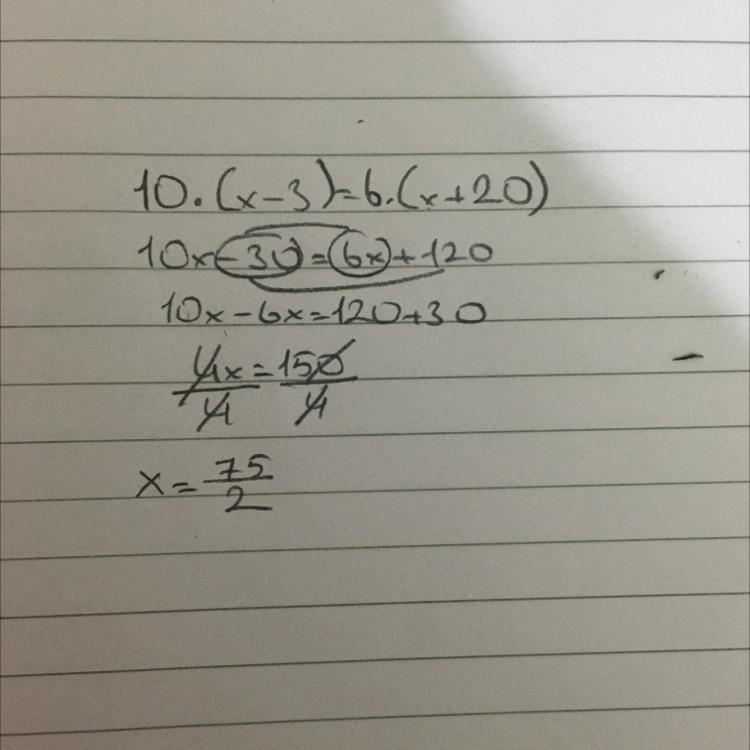 10.(x-3)=6.(x+20)
10x-30=6x+120
10x-6x=120+30
4x=150
4 4
x=75
2